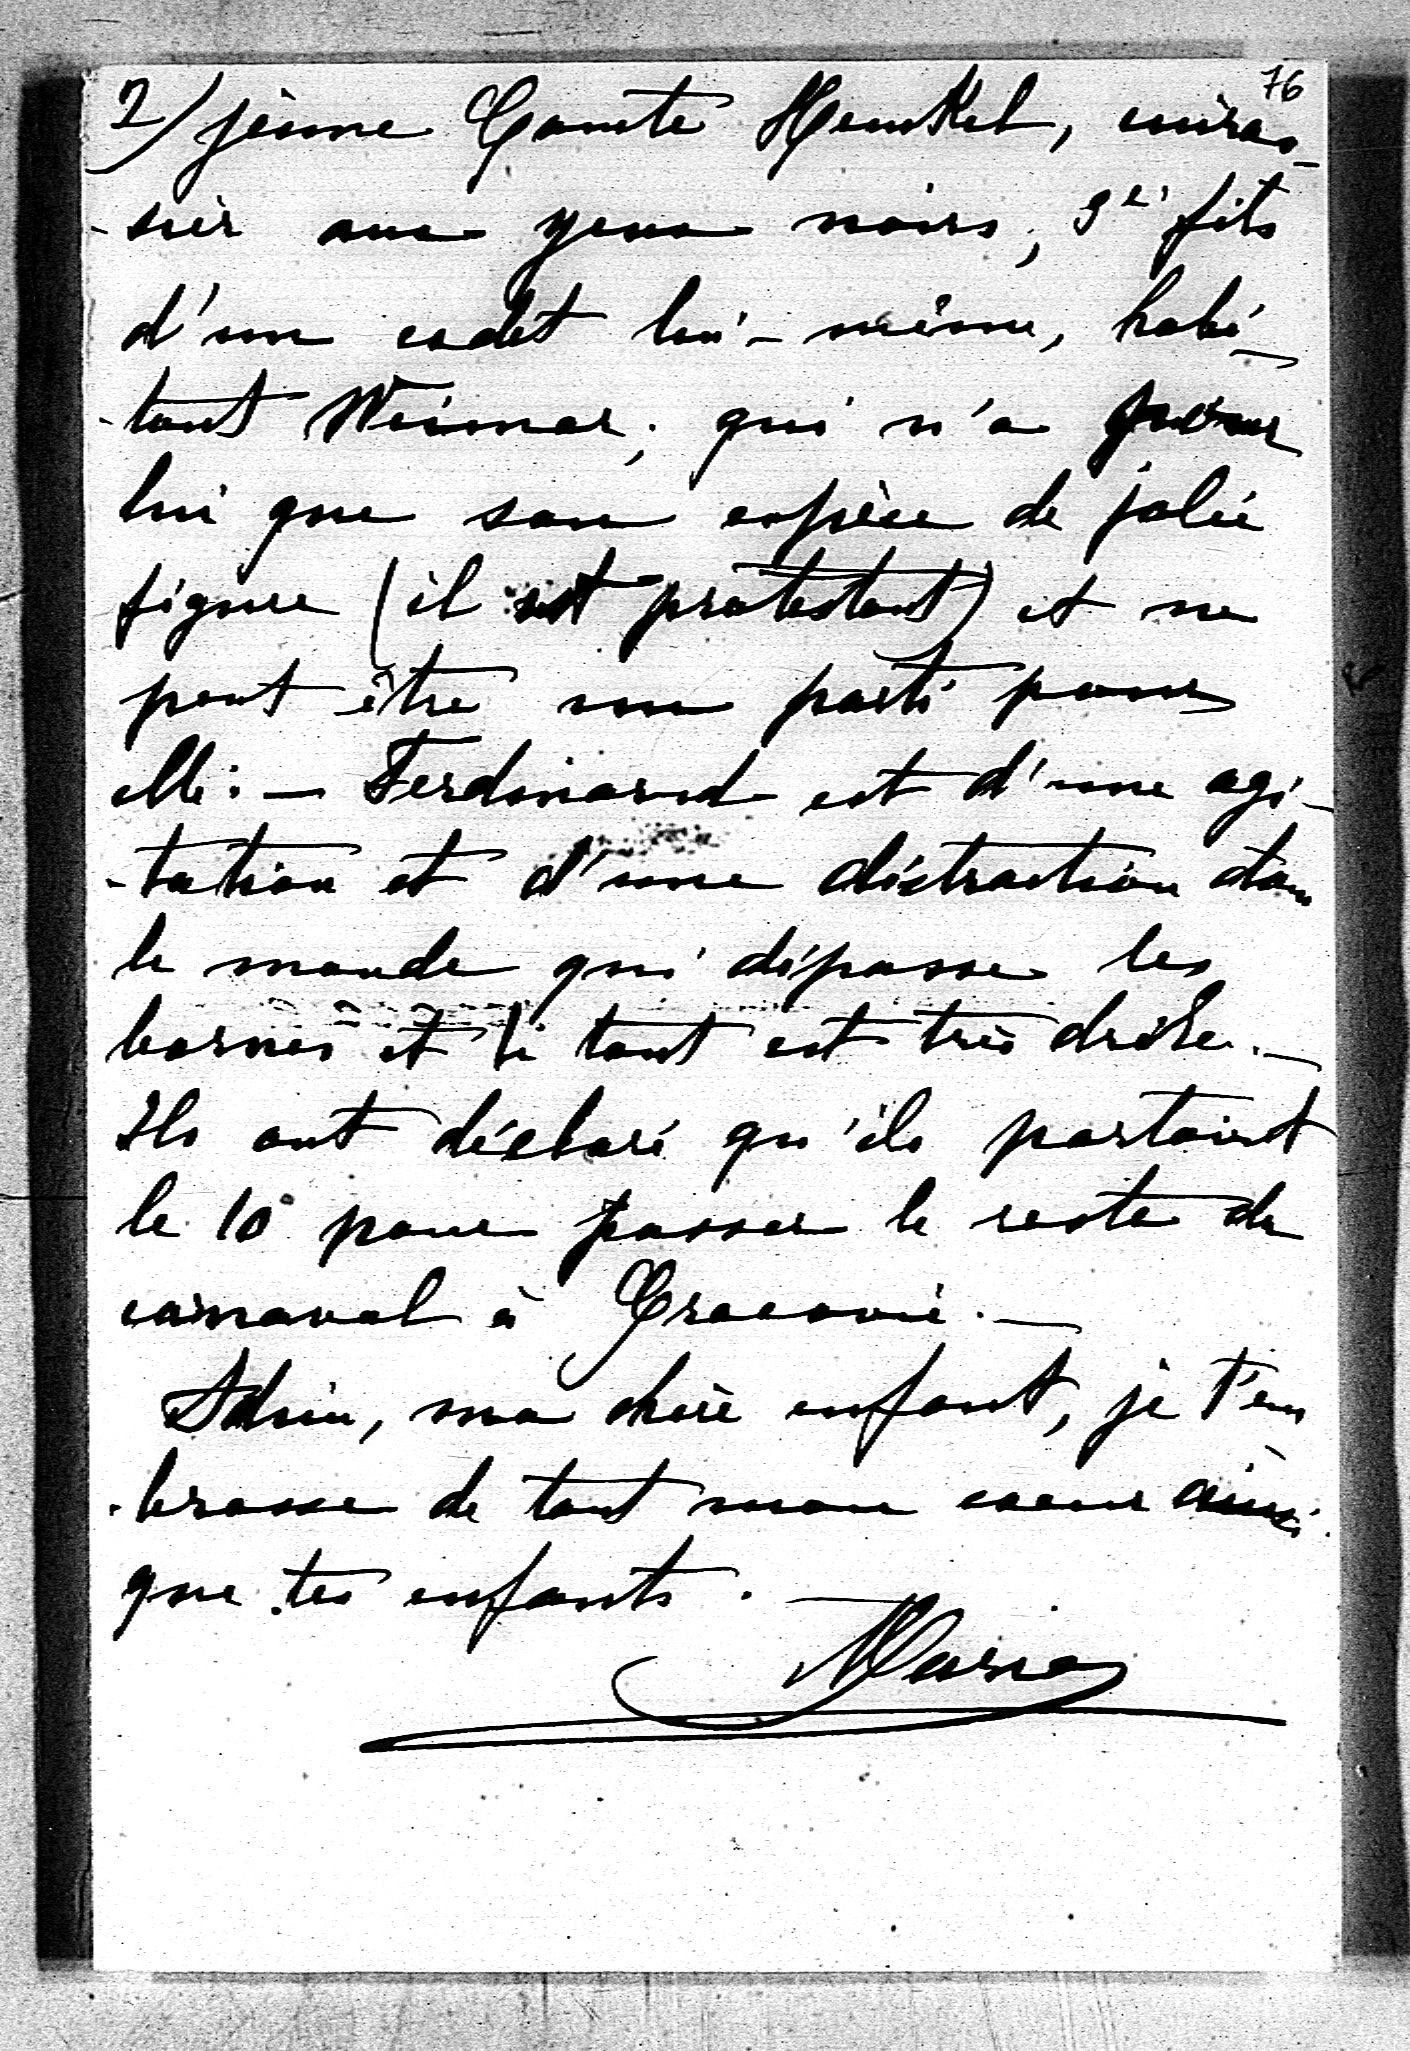 76
2/ jeune Comte Henckel, cuiras-
-sier aux yeux noirs, 3e fils
d'un cadet lui-même, habi-
-tant Weimar, qui n'a pour
lui que son espèce de jolie
figure (il est protestant) et ne
peut être un parti pour
elle. — Ferdinand est d'une agi-
-tation et d'une distraction dans
le monde qui dépasse les
bornes et le tout est très drôle. —
Ils ont déclaré qu'ils partaient
le 10 pour passer le reste du
carnaval à Cracovie. —
Adieu, ma chère enfant, je t'em
-brasse de tout mon coeur ainsi
que tes enfants.
Maria